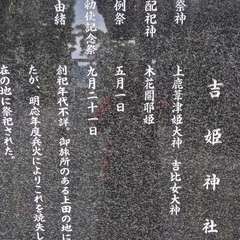 吉姫神社
祭神
上鹿葦津姫大神 吉比女大神
配祀神
木花開耶姫
例祭
五月一日
勅使記念祭
九月二十一日
由緒
創祀年代不詳。御旅所のある上田の地に
たが、明応年度兵火によりこれを焼失し
在の地に祭祀された。